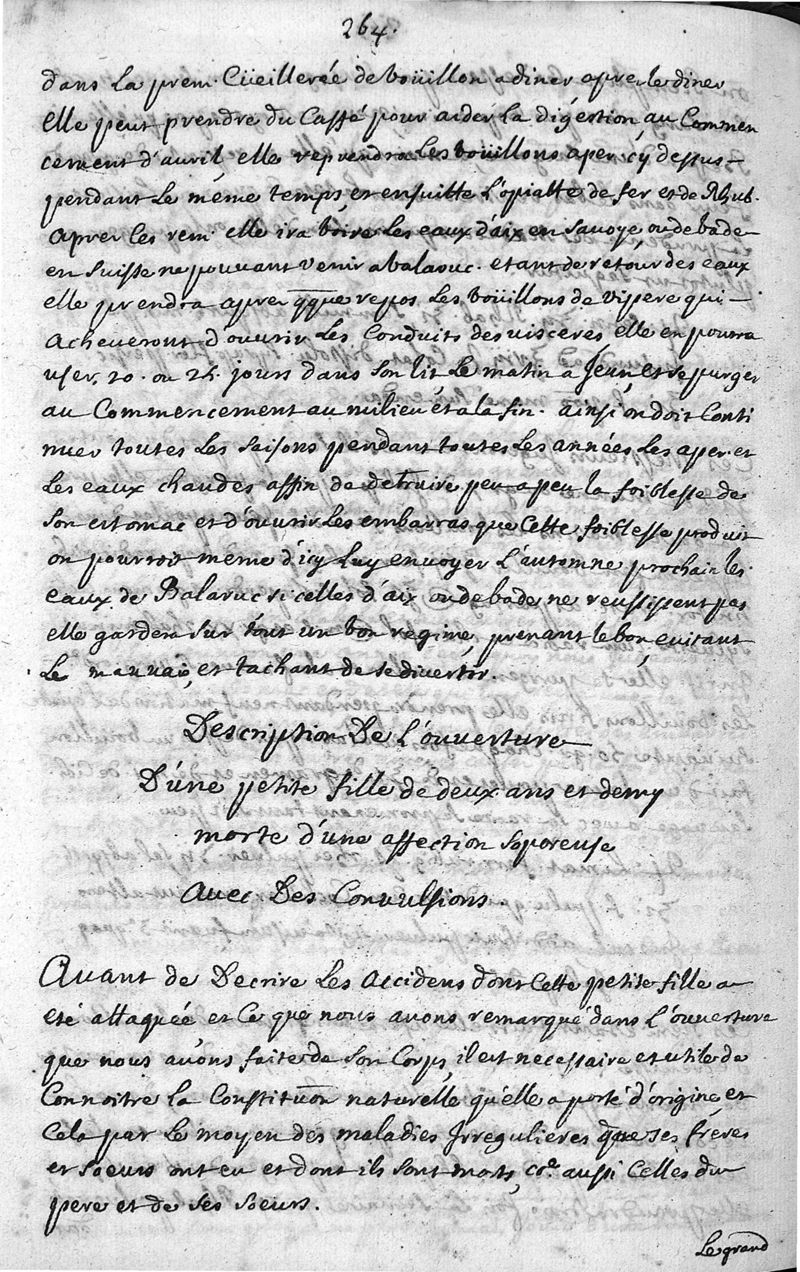 264.
dans la prem. Cüeillerée de boüillon a diner apres le diner
elle peut prendre du Caffé pour aider la digéstion au Commen
cement d'auril elle reprendra les boüillons aper. cy dessus
pendant le même temps, et ensuitte l'opiatte de fer et de Rhub.
apres les rem. elle ira boire les eaux d'aix en Savoye, ou de bade
en Suisse ne pouvant venir a balaruc. etant de retour des eaux
elle prendra apres q̃que repos les boüillons de vipere qui
acheveront d'ouvrir les Conduits des visceres, elle en pourra
user 20. ou 25. jours dans son lit le matin a Jeun, et se purger
au Commencement au milieu et a la fin. ainsi on doit Conti
nuer toutes les saisons pendant toutes les années les aper. et
les eaux chaudes affin de détruire peu a peu la foiblesse de
son estomac et d'ouvrir les embarras que Cette foiblesse produit
on pourroit même d'icy luy envoyer l'automne prochain les
eaux de Balaruc si celles d'aix ou de bade ne reussissent pas
elle gardera sur tout un bon regime, prenant le bon, evitant
le mauvais, et tachant de se divertir.
Description De L'ouverture
D'une petite fille de deux ans et demy
morte d'une affection soporeuse
Avec Des Convulsions.
Avant de Decrire les accidens dont Cette petite fille a
eté attaquée et Ce que nous avons remarqué dans l'ouverture
que nous avons faite de son Corps, il est necessaire et utile de
Connoitre la Constitu͠on naturelle qu'elle a porté d'origine, et
Cela par le moyen des maladies Irregulieres que ses freres
et soeurs ont eu et dont ils sont morts, co͠e aussi Celles du
pere et de ses soeurs.
Le grand